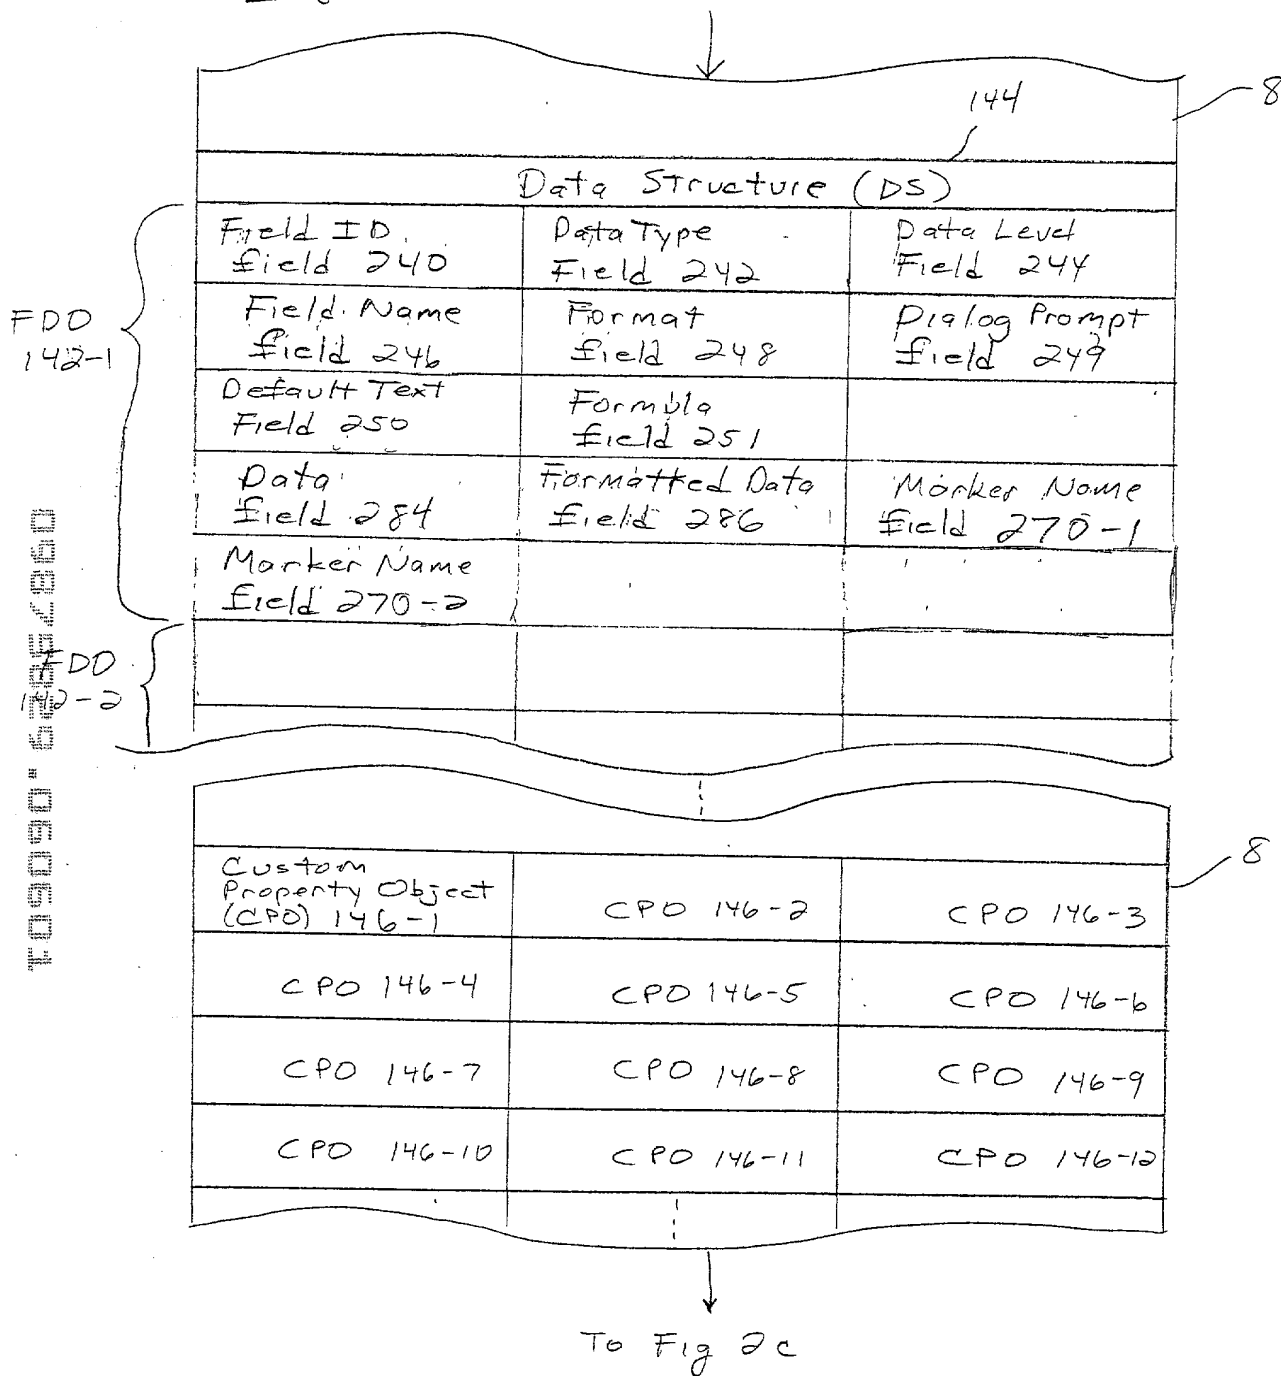 8
144
Data Structure (DS)
Field ID
field 240
Data Type
Field 242
Data Level
Field 244
FDO
142-1
Field Name
field 246
Format
field 248
Dialog Prompt
field 249
Default Text
Field 250
Formula
field 251
Data
field 284
Formatted Data
field 286
Marker Name
field 270-1
Marker Name
field 270-2
FDO
142-2
8
Custom
Property Object
(CPO) 146-1
CPO 146-2
CPO 146-3
CPO 146-4
CPO 146-5
CPO 146-6
CPO 146-7
CPO 146-8
CPO 146-9
CPO 146-10
CPO 146-11
CPO 146-12
To Fig 2c